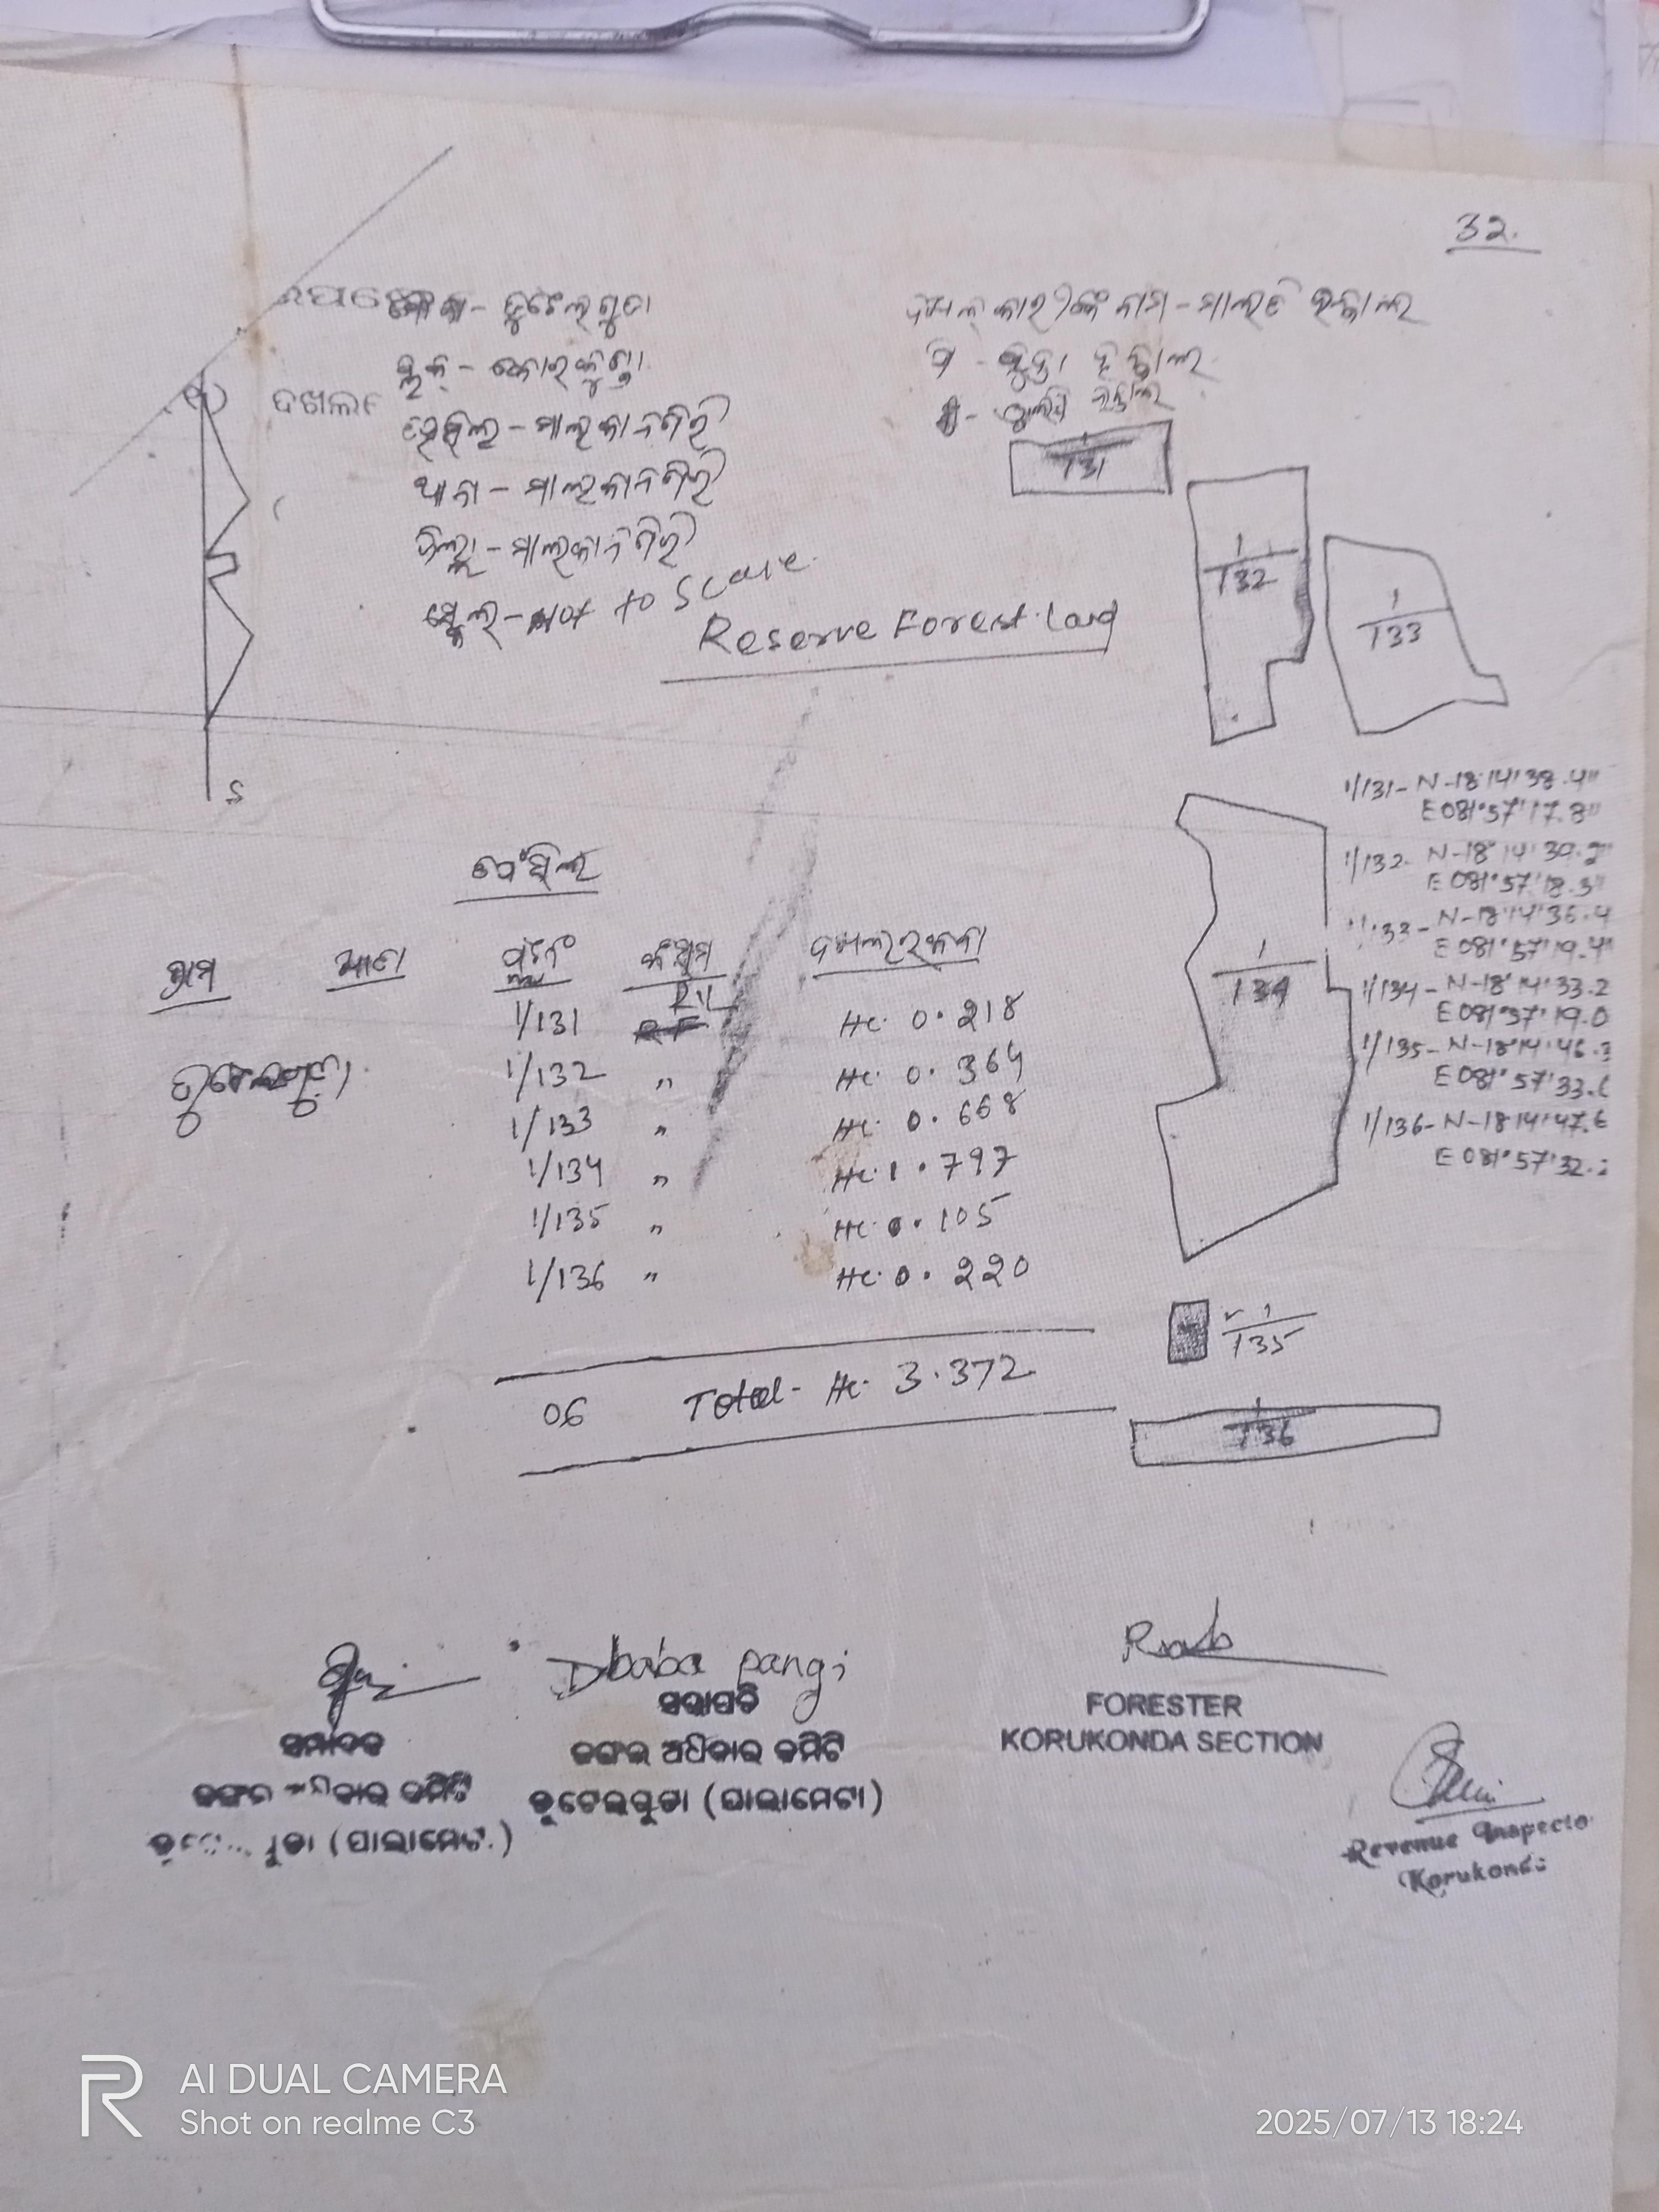 32.
ମୌଜା - ତୁଟେଲଗୁଡା
ବ୍ଲକ - କୋରୁକୁଣ୍ଡା
ଦଖଲ
ତହସିଲ - ମାଲକାନଗିରି
ଥାନା - ମାଲକାନଗିରି
ଜିଲ୍ଲା - ମାଲକାନଗିରି
ସ୍କେଲ - Not to Scale
Reserve Forest Land
ଦଖଲକାରୀଙ୍କ ନାମ - ମାଲତି
1/131
1/132
1/133
S
1/131- N-18°14'38.4"
E 081°57'17.8"
1/132- N-18°14'39.2"
E 081°57'18.3"
1/133- N-18°14'36.4
E 081°57'19.4"
1/134- N-18°14'33.2
E 081°57'19.0
1/135- N-18°14'46.
E 081°57'33.
1/136- N-18°14'47.
E 081°57'32.
1/134
ଗ୍ରାମ ଖାତା ପ୍ଲଟ ନଂ କିସମ ଦଖଲ ରକବା
1/131 RF Hc. 0.218
ତୁଟେଲଗୁଡା 1/132 " Hc. 0.364
1/133 " Hc. 0.668
1/134 " Hc. 1.797
1/135 " Hc. 0.105
1/136 " Hc. 0.220
06 Total- Hc. 3.372
1/135
1/136
Dbaba pangi
ସଭାପତି
ଜଙ୍ଗଲ ଅଧିକାର କମିଟି
ତୁଟେଲଗୁଡା (ପାଲାମେଟା)
ସମ୍ପାଦକ
ଜଙ୍ଗଲ ଅଧିକାର କମିଟି
(ପାଲାମେଟା)
FORESTER
KORUKONDA SECTION
Revenue Inspecto
Korukonda
AI DUAL CAMERA
Shot on realme C3
2025/07/13 18:24